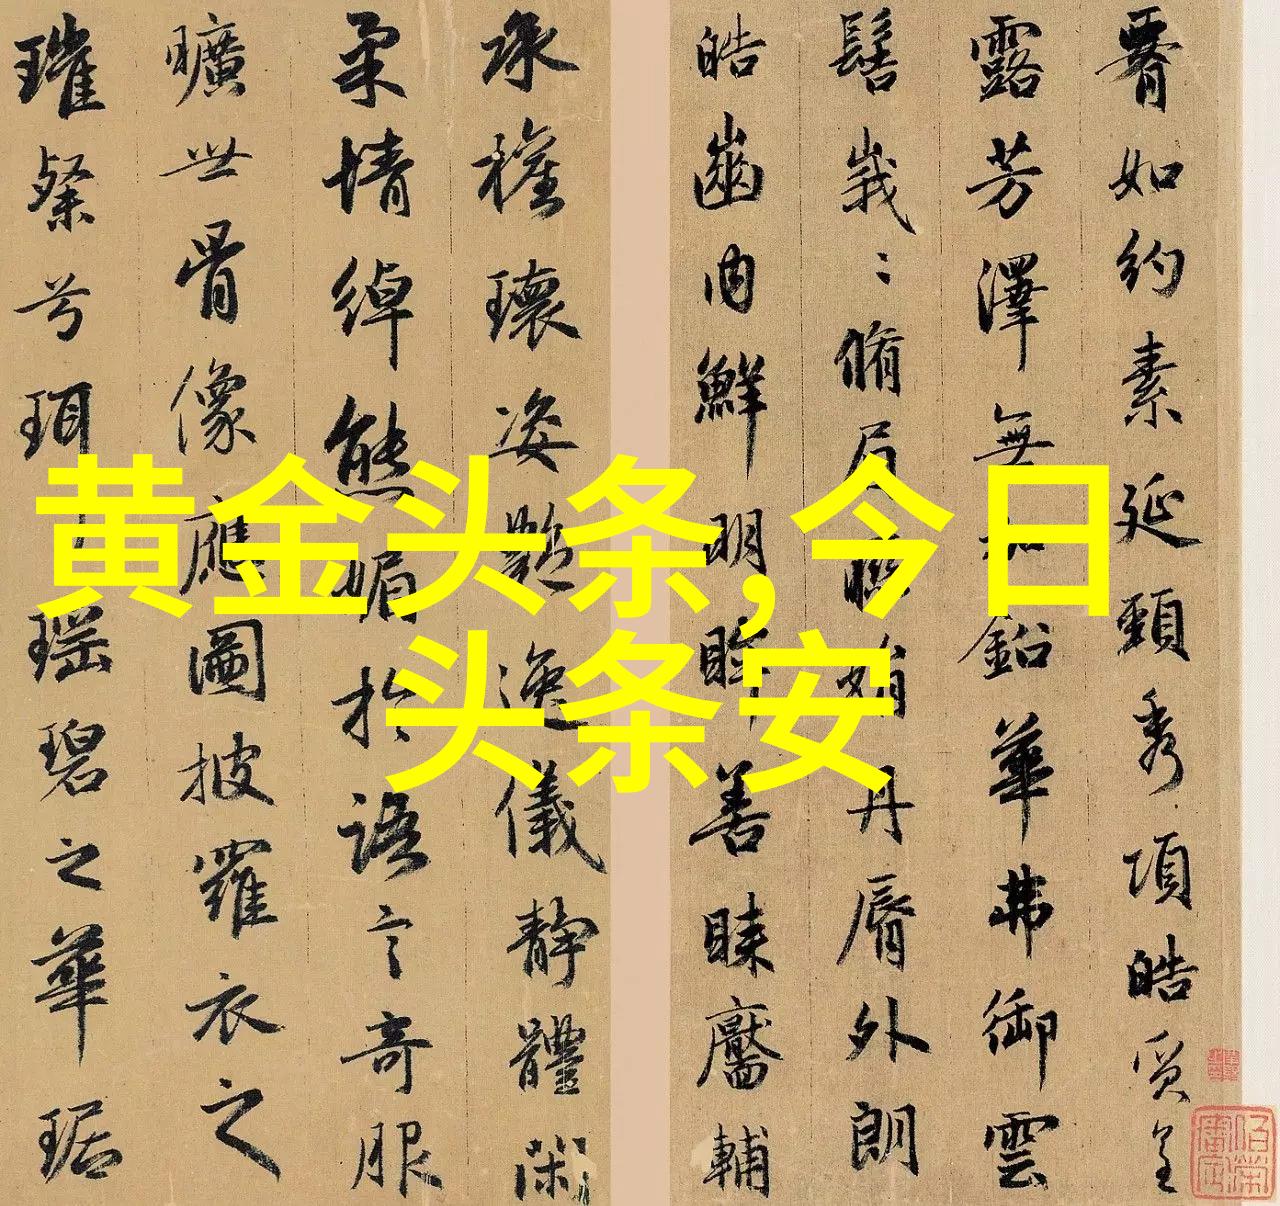 黄金头条,今日
头条安
如約素延頸秀項皓質呈
露芳澤無加鉛華弗御雲
髻峩〻脩眉聯娟丹脣外朗
皓齒内鮮明眸善睞靨輔
承權瓌姿艷逸儀靜體閑
柔情綽態媚於語言奇服
曠世骨像應圖披羅衣之
璀粲兮珥瑤碧之華琚